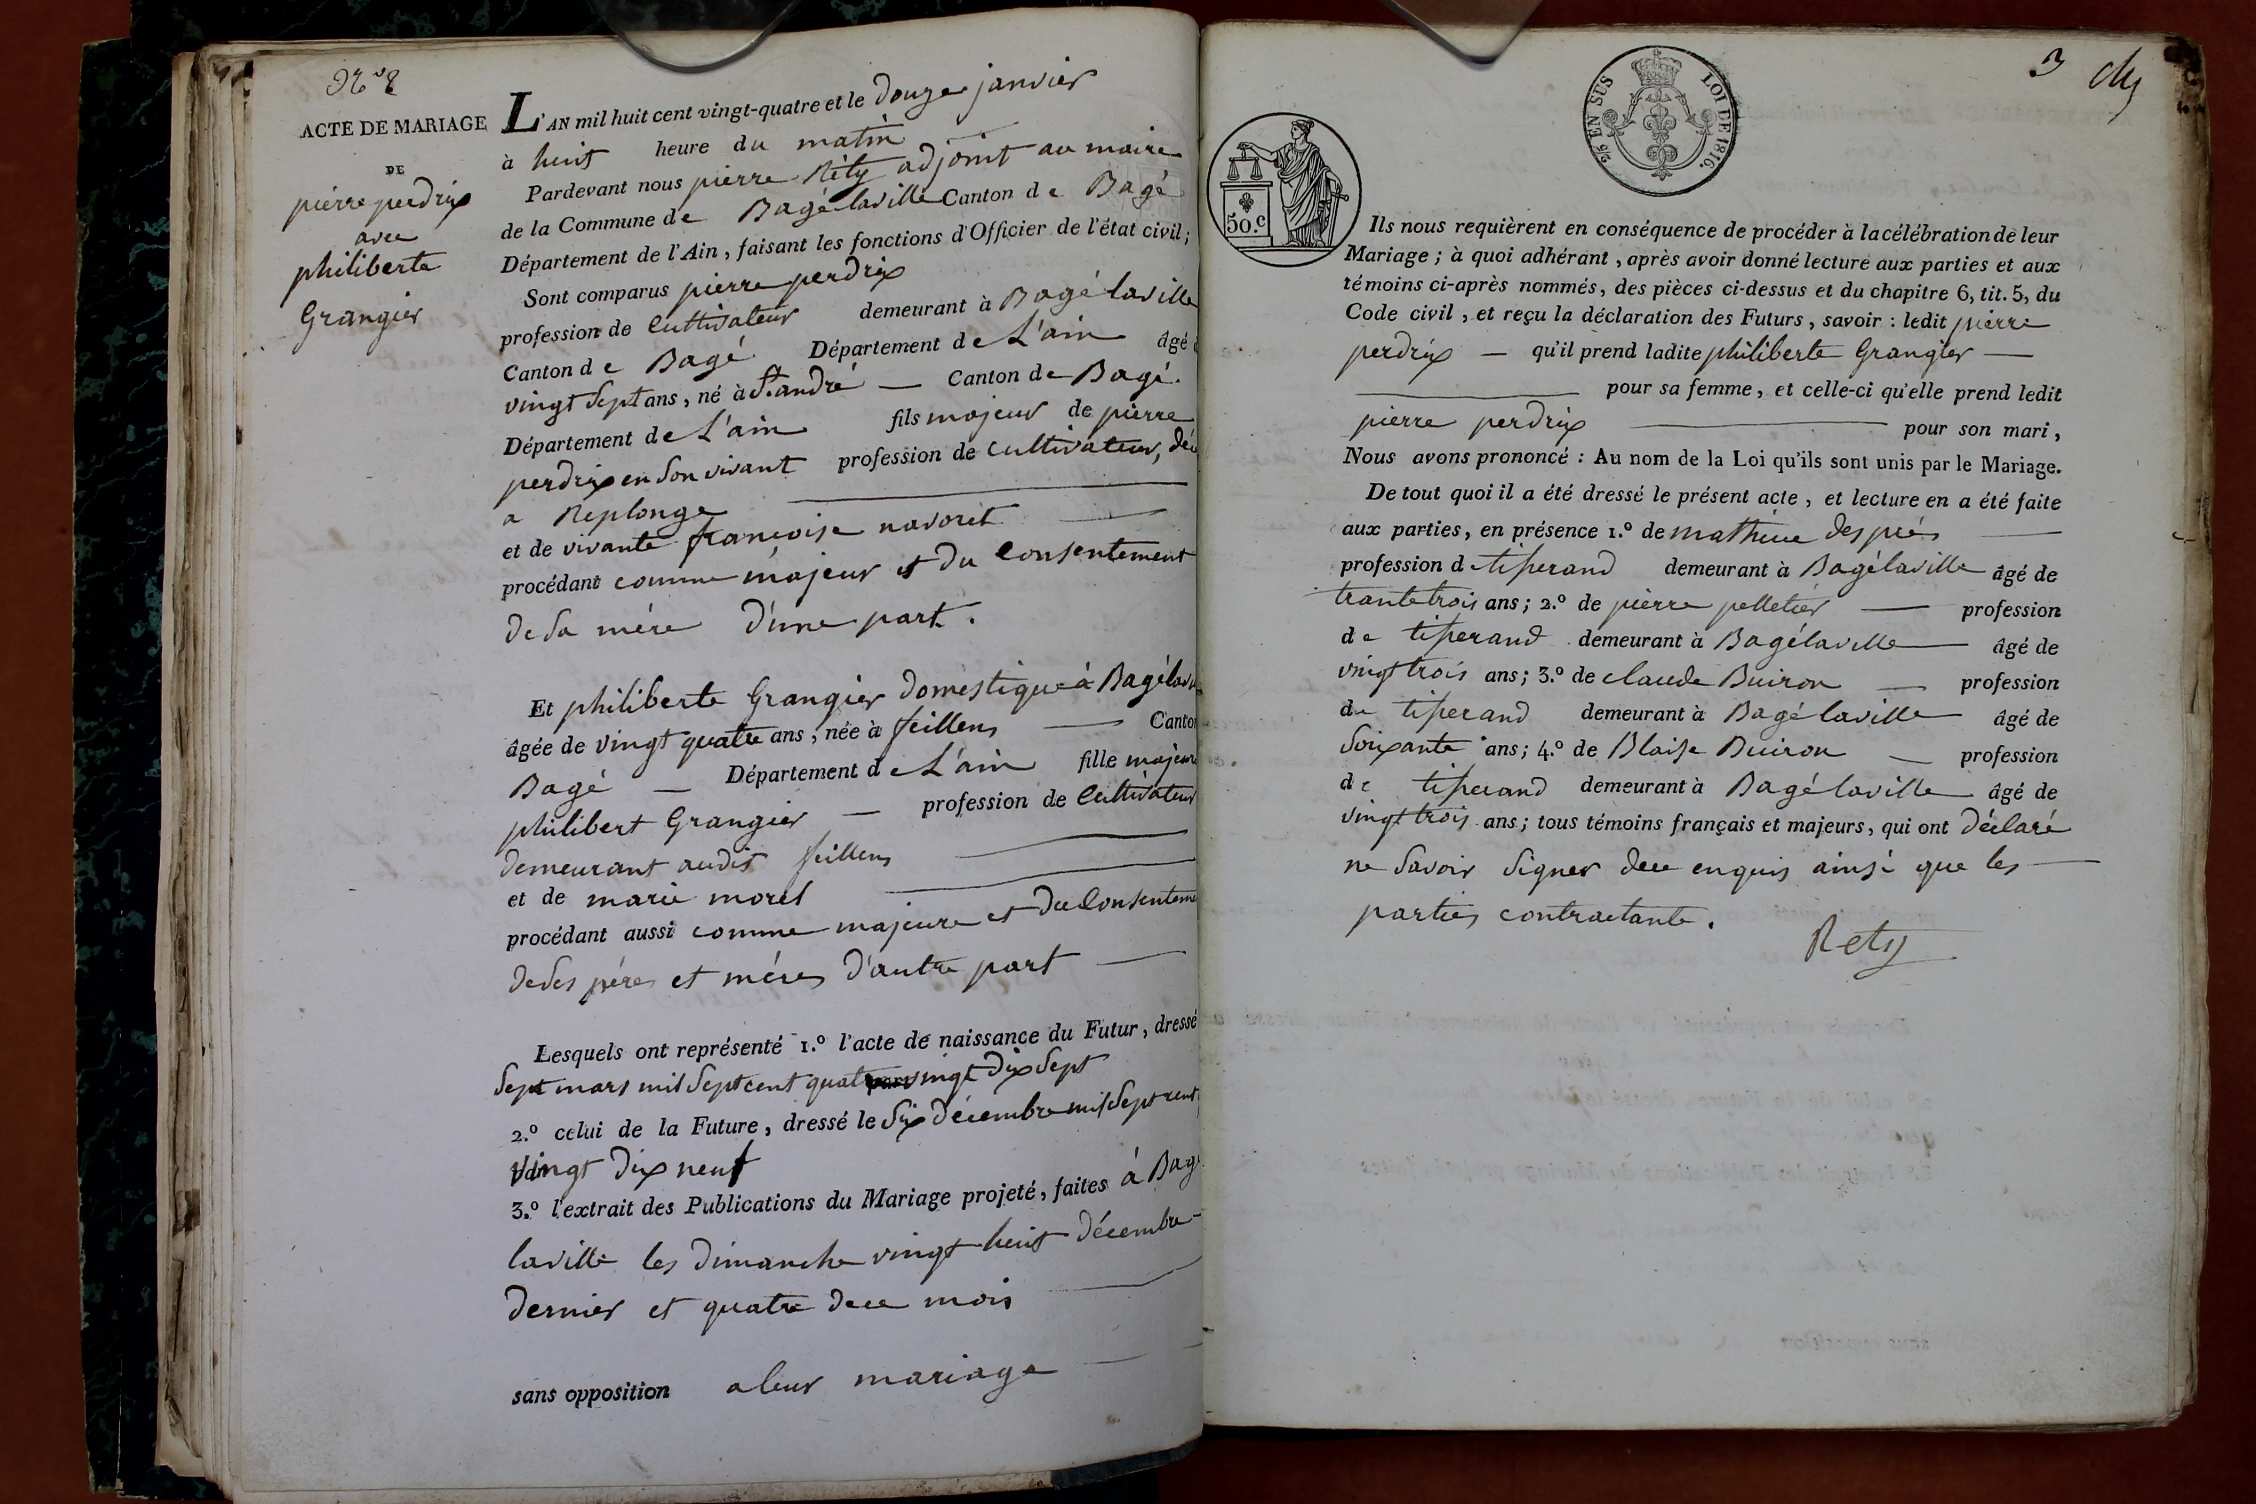 N.o 2
ACTE DE MARIAGE
DE
pierre perdrix
avec
philiberte
Grangier
L'AN mil huit cent vingt-quatre et le douze janvier
à huit heure du matin
Pardevant nous pierre Rety adjoint au maire
de la Commune de Bagé laville Canton de Bagé
Département de l'Ain, faisant les fonctions d'Officier de l'état civil;
Sont comparus pierre perdrix
profession de Cultivateur demeurant à Bagé laville
Canton de Bagé Département de L'ain âgé
vingt Sept ans, né à St. andré — Canton de Bagé
Département de L'ain fils majeur de pierre
perdrix en Son vivant profession de cultivateur, déc
a Replonge
et de vivante françoise navoret
procédant comme majeur et du Consentement
de Sa mére D'une part.
Et philiberte Grangier Domestique à Bagélav
âgée de vingt quatre ans, née à feillens — Canton
Bagé — Département de L'ain fille majeur
philibert Grangier — profession de Cultivateur
demeurant audit feillens
et de marie morel
procédant aussi comme majeure et du Consenteme
de Ses péres et méres D'autre part —
Lesquels ont représenté 1.º l'acte de naissance du Futur, dressé
Sept mars mil Sept cent quatre vingt Dix Sept
2.º celui de la Future, dressé le Six Décembre mil Sept cent
vingt Dix neuf
3.º l'extrait des Publications du Mariage projeté, faites à Bagé
laville les Dimanche vingt huit Décembre
Dernier et quatre de ce mois
sans opposition a leur mariage
3
25 EN SUS LOI DE 1816.
50.c
Ils nous requièrent en conséquence de procéder à la célébration de leur
Mariage; à quoi adhérant, après avoir donné lecture aux parties et aux
témoins ci-après nommés, des pièces ci-dessus et du chapitre 6, tit. 5, du
Code civil, et reçu la déclaration des Futurs, savoir: ledit pierre
perdrix — qu'il prend ladite philiberte Grangier —
pour sa femme, et celle-ci qu'elle prend ledit
pierre perdrix pour son mari,
Nous avons prononcé: Au nom de la Loi qu'ils sont unis par le Mariage.
De tout quoi il a été dressé le présent acte, et lecture en a été faite
aux parties, en présence 1.º de mathieu Després
profession de tisserand demeurant à Bagélaville âgé de
trante trois ans; 2.º de pierre pelletier — profession
de tisserand demeurant à Bagélaville — âgé de
vingt trois ans; 3.º de claude Buiron — profession
de tisserand demeurant à Bagé laville âgé de
Soixante ans; 4.º de Blaise Buiron — profession
de tisserand demeurant à Bagé laville âgé de
vingt trois ans; tous témoins français et majeurs, qui ont déclaré
ne Savoir Signer de ce enquis ainsi que les
parties contractante.
Rety